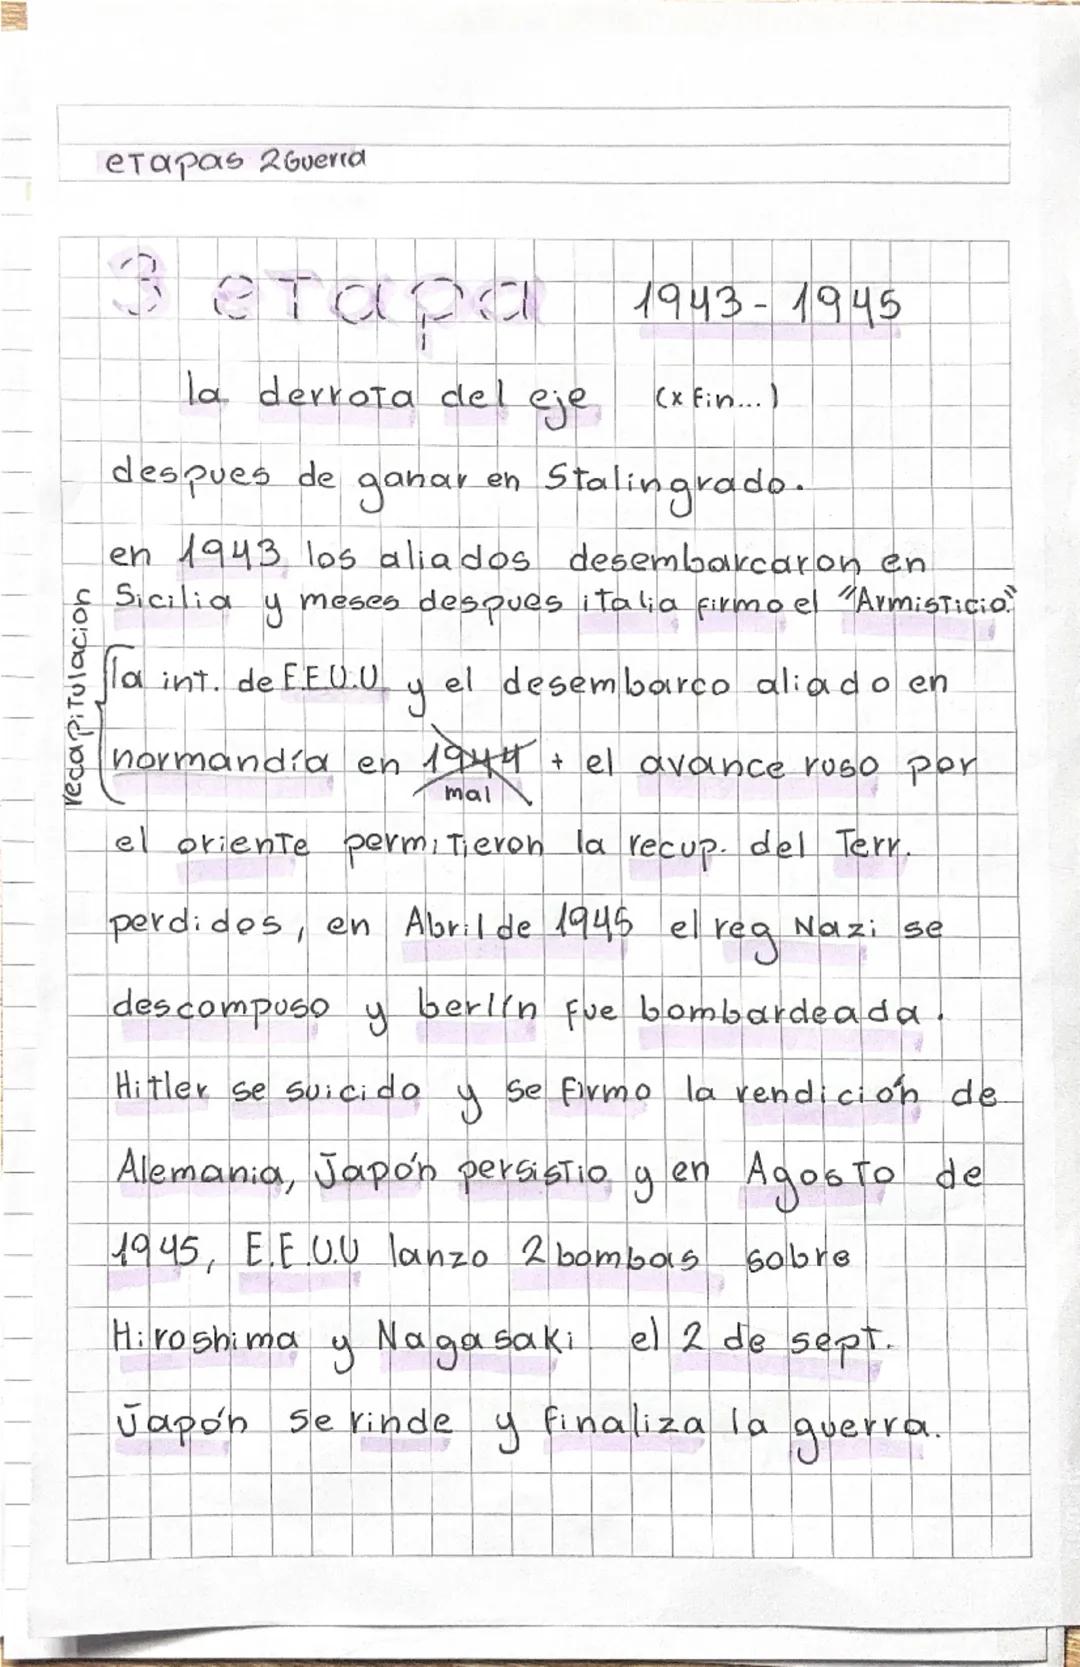 etapas 2Guerra
3 etapa 1943-1945
la derrota del eje (x fin...)
despues de ganar en Stalingrado.
en 1943 los aliados desembarcaron en
Sicilia y meses despues italia firmo el "Armisticio."
recapitulacion
la int. de E.E.U.U y el desembarco aliado en
normandía en 1944 + el avance ruso por
mal
el oriente permitieron la recup. del Terr.
perdidos, en Abril de 1945 el reg Nazi se
descompuso y berlín fue bombardeada.
Hitler se suicido y se firmo la rendición de
Alemania, Japón persistio y en Agosto de
1945, E.E.U.U lanzo 2 bombas sobre
Hiroshima y Nagasaki el 2 de sept.
Japón se rinde y finaliza la guerra.